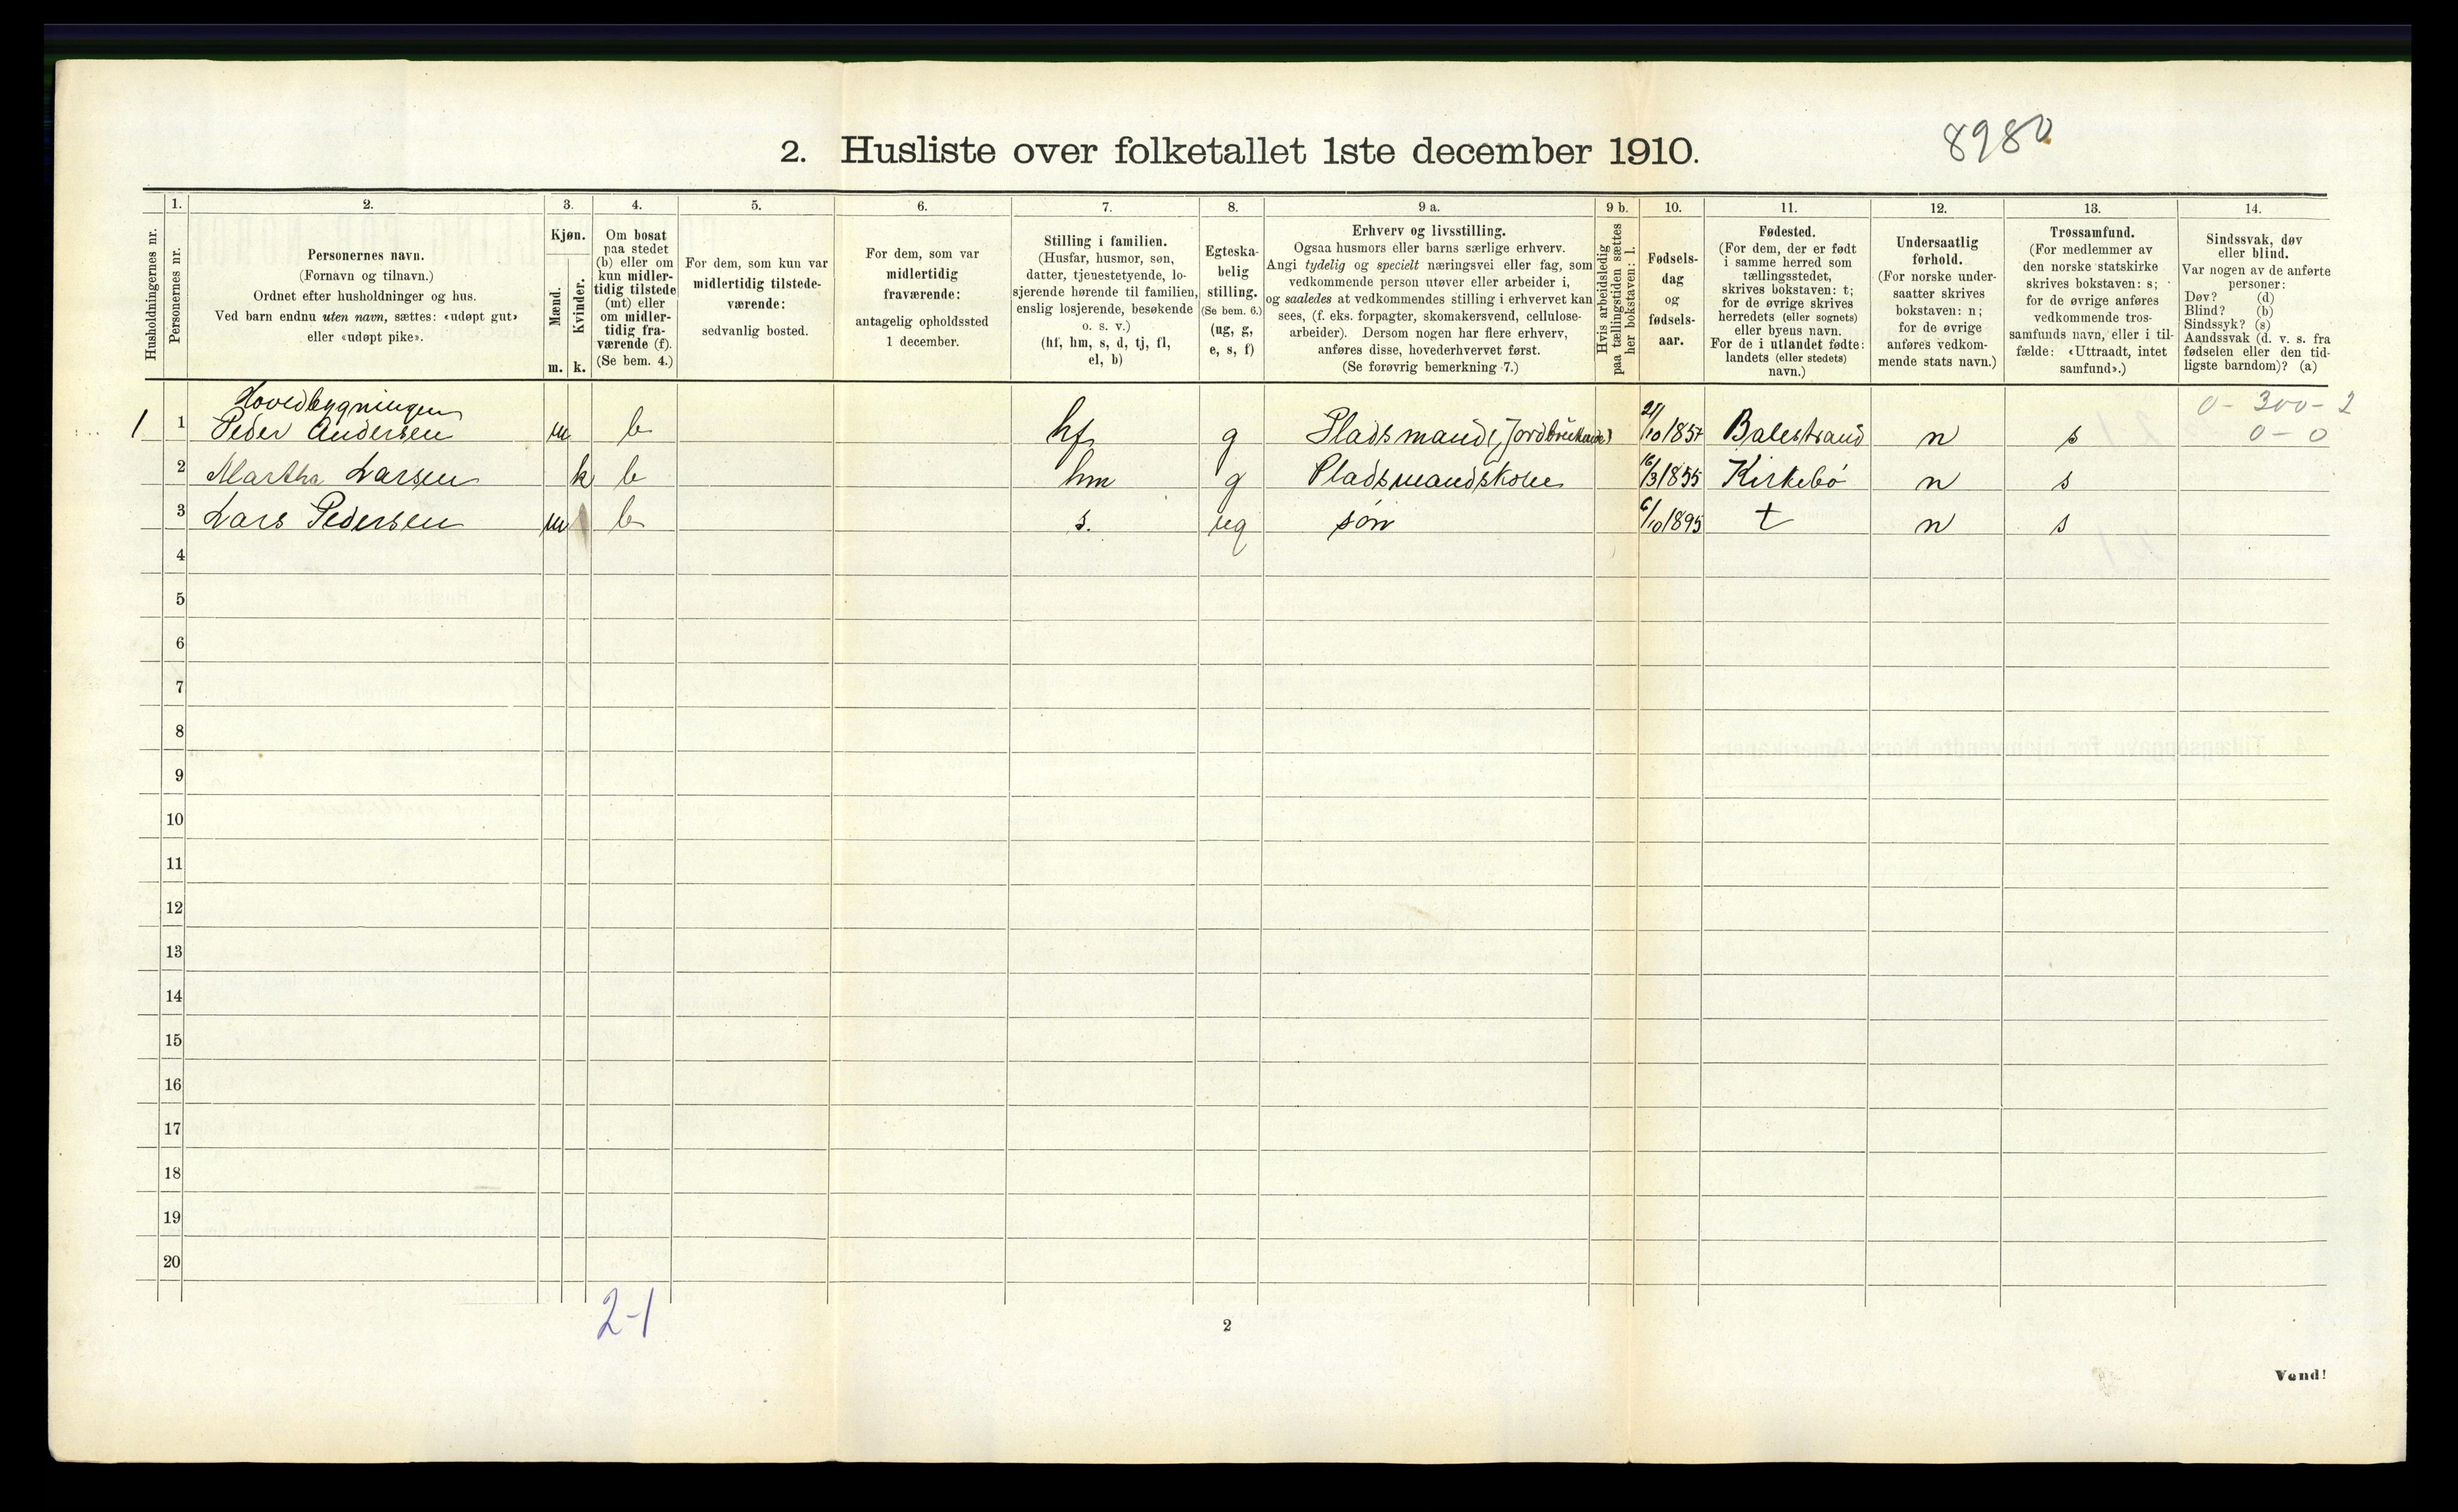 8980
2. Husliste over folketallet 1ste december 1910.
Husholdningernes nr.
1.
Personernes nr.
2.
Personernes navn.
(Fornavn og tilnavn.)
Ordnet efter husholdninger og hus.
Ved barn endnu uten navn, sættes: «udøpt gut»
eller «udøpt pike».
3.
Kjøn.
Mænd.
Kvinder.
m. k.
4.
Om bosat
paa stedet
(b) eller om
kun midler-
tidig tilstede
(mt) eller
om midler-
tidig fra-
værende (f).
(Se bem. 4.)
5.
For dem, som kun var
midlertidig tilstede-
værende:
sedvanlig bosted.
6.
For dem, som var
midlertidig
fraværende:
antagelig opholdssted
1 december.
7.
Stilling i familien.
(Husfar, husmor, søn,
datter, tjenestetyende, lo-
sjerende hørende til familien,
enslig losjerende, besøkende
o. s. v.)
(hf, hm, s, d, tj, fl,
el, b)
8.
Egteska-
belig
stilling.
(Se bem. 6.)
(ug, g,
e, s, f)
9 a.
Erhverv og livsstilling.
Ogsaa husmors eller barns særlige erhverv.
Angi tydelig og specielt næringsvei eller fag, som
vedkommende person utøver eller arbeider i,
og saaledes at vedkommendes stilling i erhvervet kan
sees, (f. eks. forpagter, skomakersvend, cellulose-
arbeider). Dersom nogen har flere erhverv,
anføres disse, hovederhvervet først.
(Se forøvrig bemerkning 7.)
9 b.
Hvis arbeidsledig
paa tællingstiden sættes
her bokstaven: l.
10.
Fødsels-
dag
og
fødsels-
aar.
11.
Fødested.
(For dem, der er født
i samme herred som
tællingsstedet,
skrives bokstaven: t;
for de øvrige skrives
herredets (eller sognets)
eller byens navn.
For de i utlandet fødte:
landets (eller stedets)
navn.)
12.
Undersaatlig
forhold.
(For norske under-
saatter skrives
bokstaven: n;
for de øvrige
anføres vedkom-
mende stats navn.)
13.
Trossamfund.
(For medlemmer av
den norske statskirke
skrives bokstaven: s;
for de øvrige anføres
vedkommende tros-
samfunds navn, eller i til-
fælde: «Uttraadt, intet
samfund».)
14.
Sindssvak, døv
eller blind.
Var nogen av de anførte
personer:
Døv? (d)
Blind? (b)
Sindssyk? (s)
Aandssvak (d. v. s. fra
fødselen eller den tid-
ligste barndom)? (a)
Hovedbygningen 0 - 300 - 2
1 1 Peder Andersen m b hf g Pladsmand (Jordbrukande) 21/10 1857 Balestrand n s 0 - 0
2 Martha Larsen k b hm g Pladsmandskone 16/3 1855 Kirkebö n s
3 Lars Pedersen m b s. ug sön 6/10 1895 t n s
4
5
6
7
8
9
10
11
12
13
14
15
16
17
18
19
20
2-1
2
Vend!